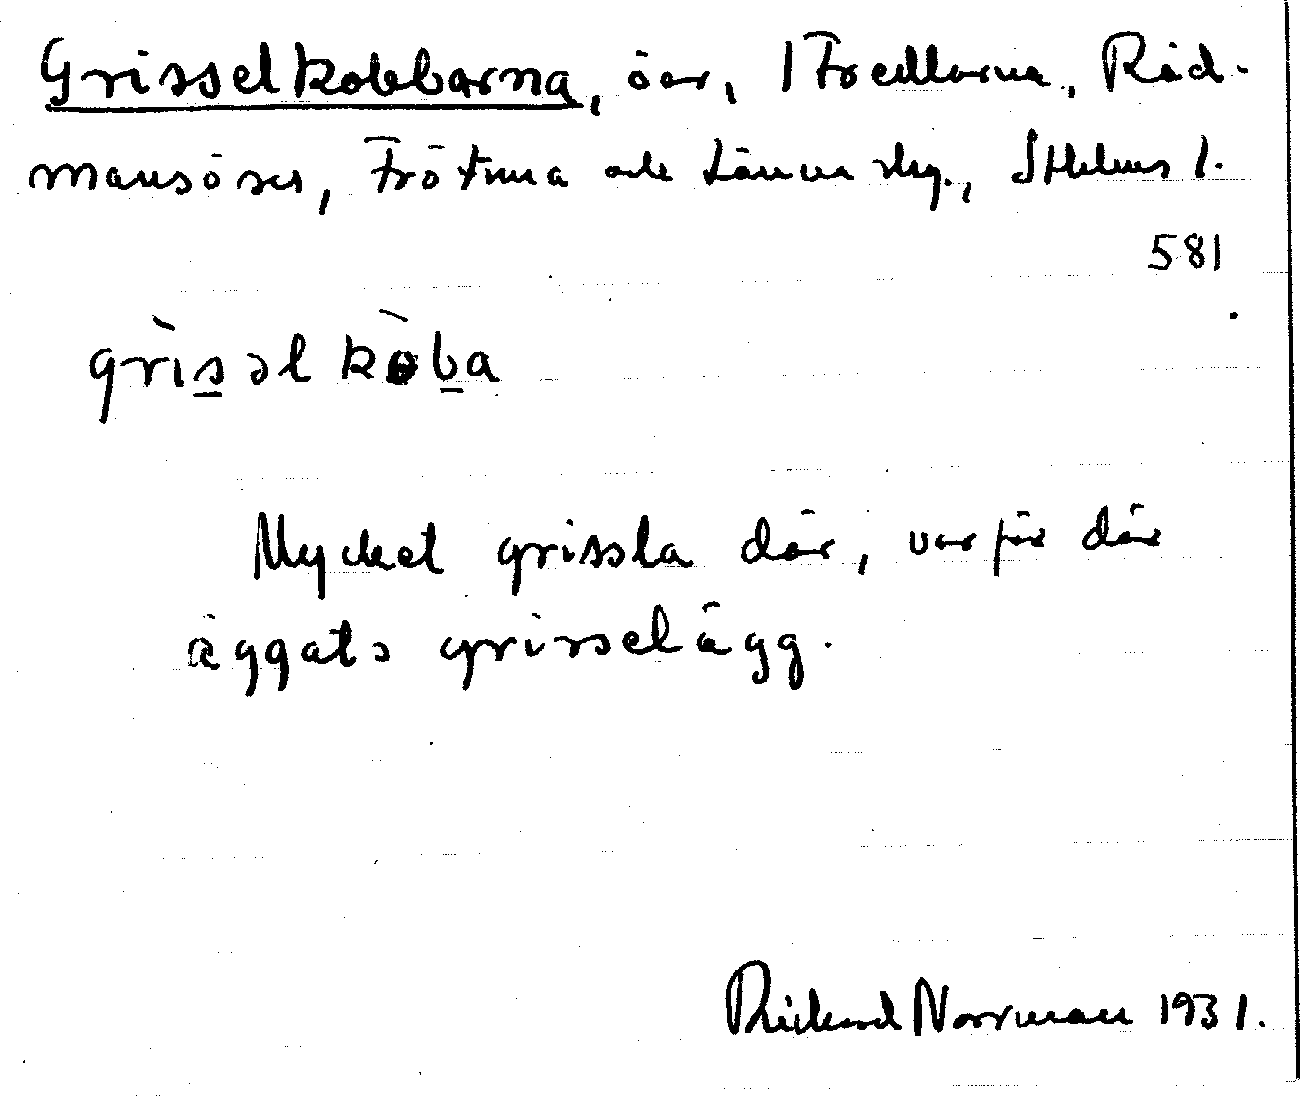 Grisselkobbarna, öar, I Fredlarna, Råd-
mansö sn, Frötuna och Länna skg., Sthlms l.
581
grìsəl kòba
Mycket grissla där, varför där
äggats grisselägg.
Rickard Norrman 1931.